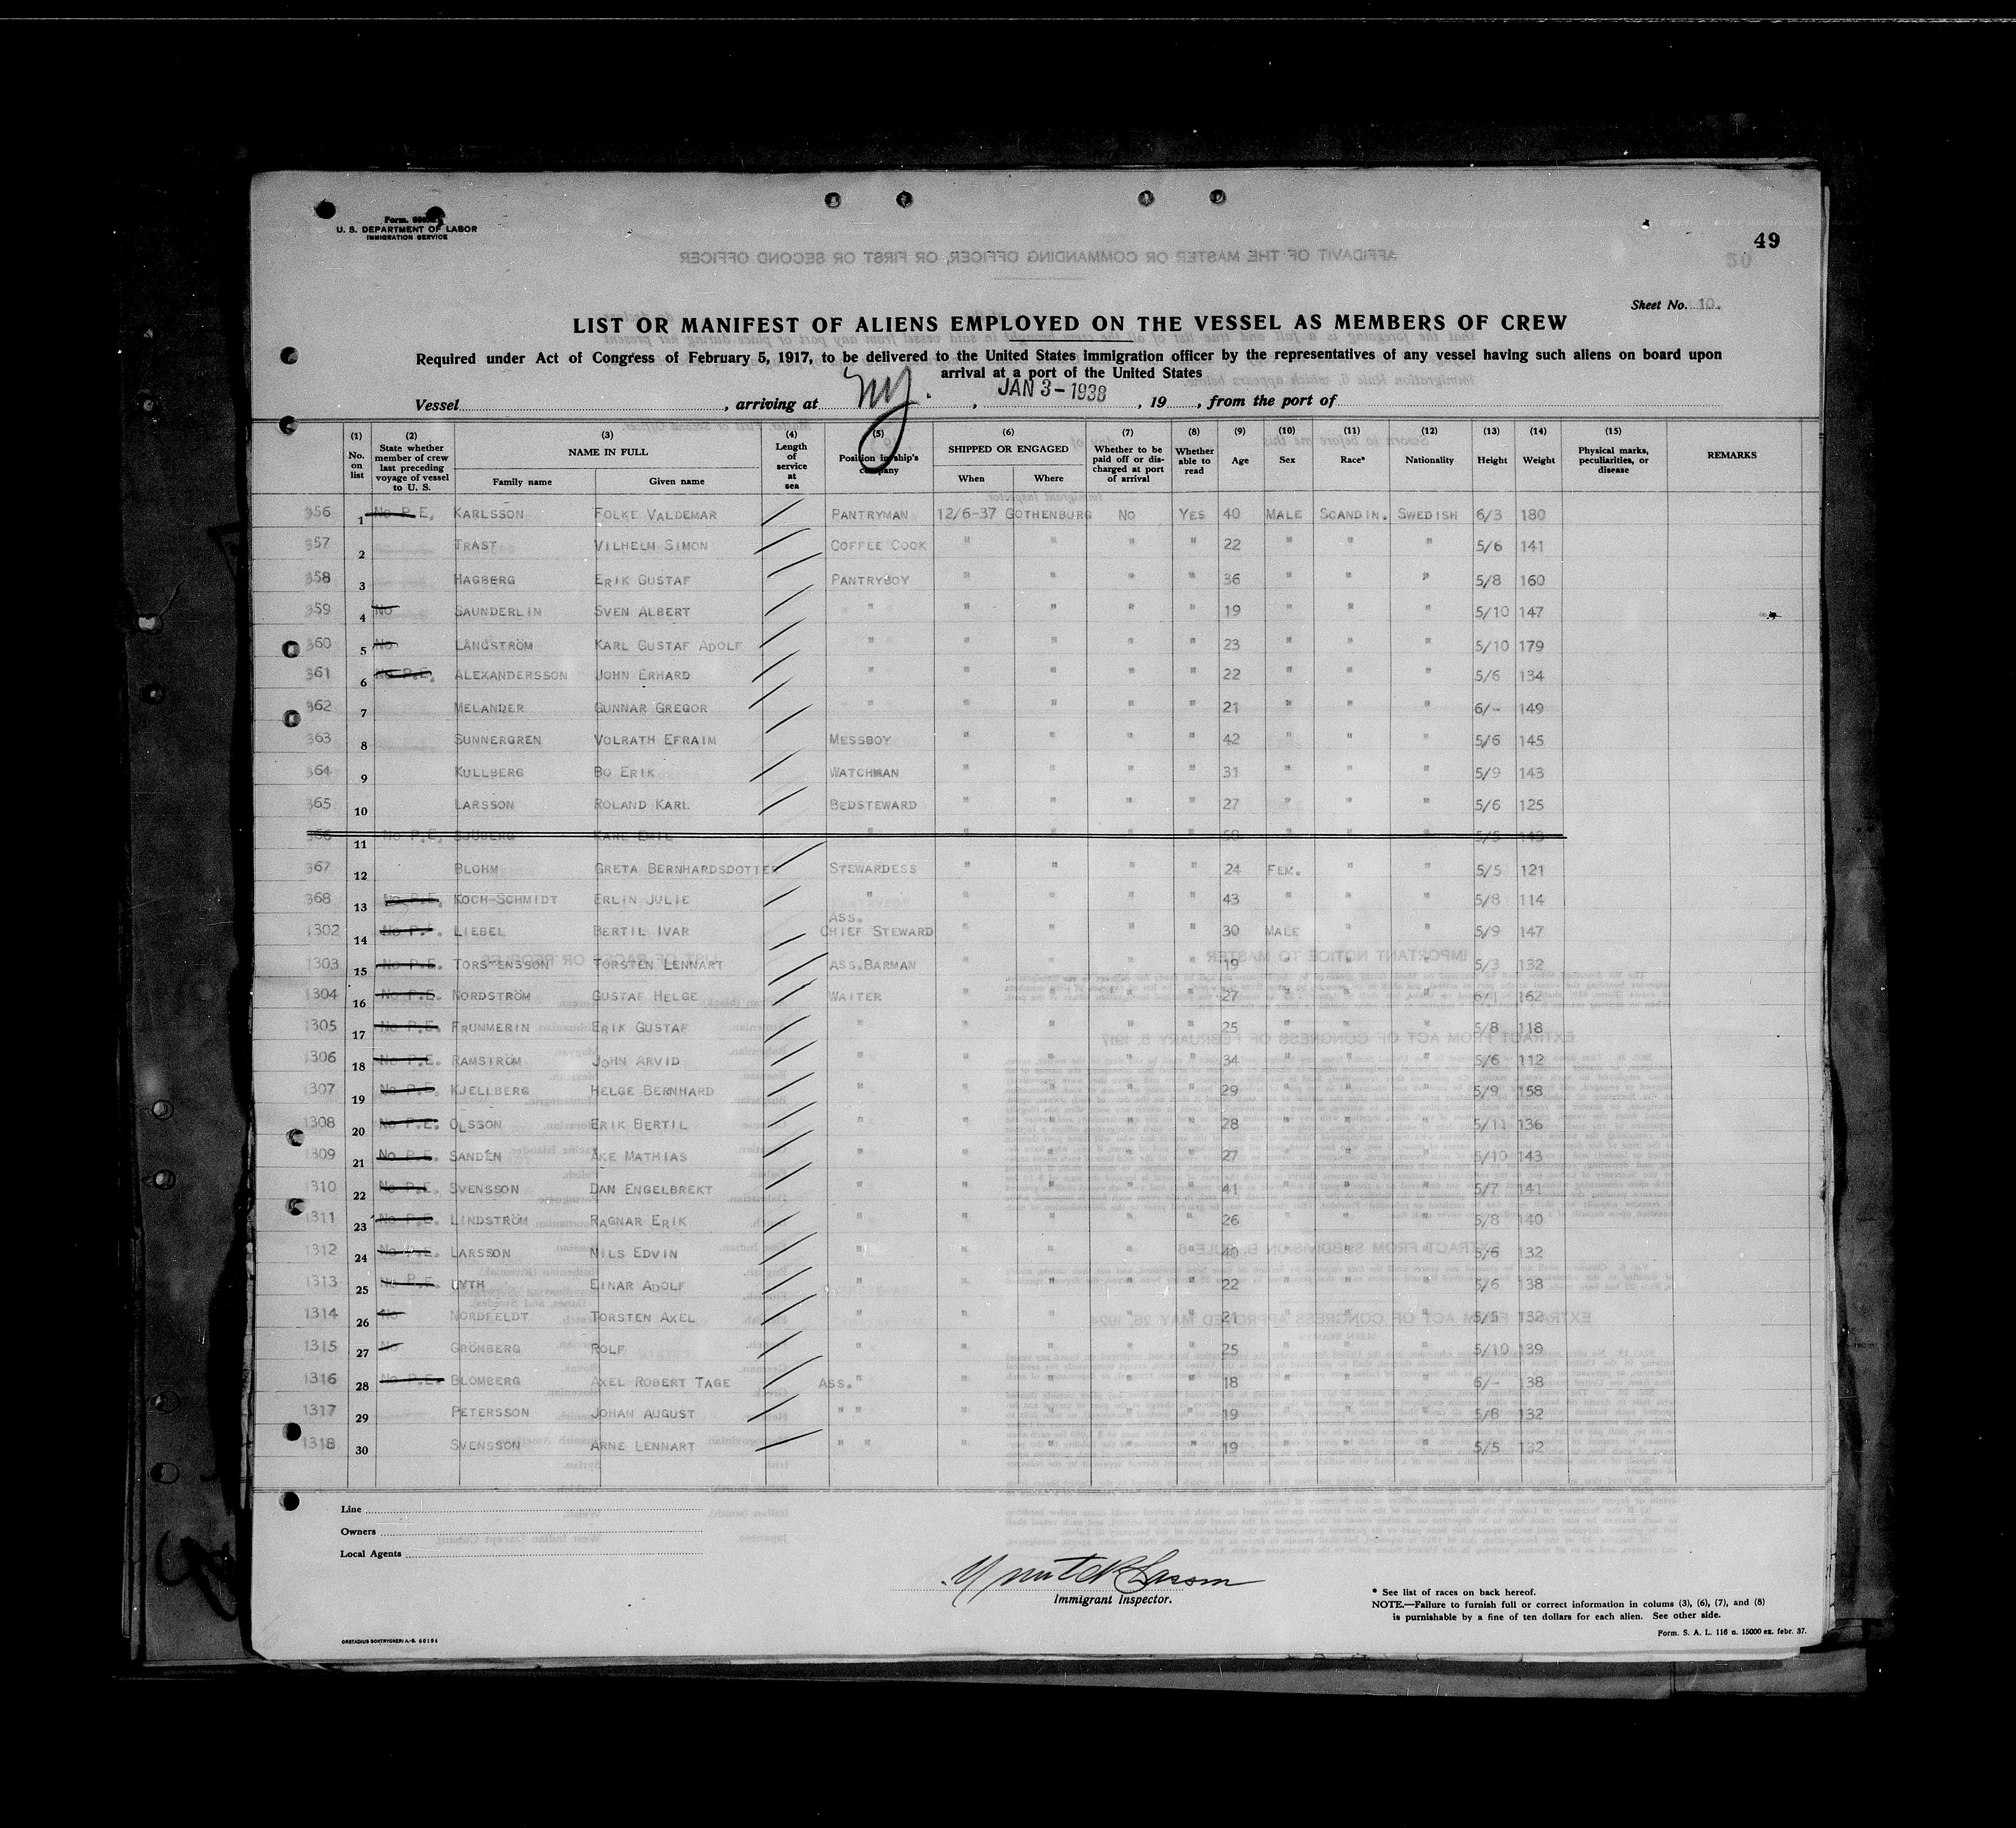 Form.
U. S. DEPARTMENT OF LABOR
IMMIGRATION SERVICE
49
50
Sheet No. 10.
LIST OR MANIFEST OF ALIENS EMPLOYED ON THE VESSEL AS MEMBERS OF CREW
Required under Act of Congress of February 5, 1917, to be delivered to the United States immigration officer by the representatives of any vessel having such aliens on board upon
arrival at a port of the United States
Vessel , arriving at NY. , JAN 3-1938 , 19 , from the port of
(1) No. on list (2) State whether member of crew last preceding voyage of vessel to U. S. (3) NAME IN FULL Family name Given name (4) Length of service at sea (5) Position in ship's company (6) SHIPPED OR ENGAGED When Where (7) Whether to be paid off or discharged at port of arrival (8) Whether able to read (9) Age (10) Sex (11) Race* (12) Nationality (13) Height (14) Weight (15) Physical marks, peculiarities, or disease REMARKS
356 1 No P.E. KARLSSON FOLKE VALDEMAR PANTRYMAN 12/6-37 GOTHENBURG NO YES 40 MALE SCANDIN. SWEDISH 6/3 180
357 2 TRAST VILHELM SIMON COFFEE COOK " " " " 22 " " " 5/6 141
358 3 HAGBERG ERIK GUSTAF PANTRYBOY " " " " 36 " " " 5/8 160
359 4 No SAUNDERLIN SVEN ALBERT " " " " " 19 " " " 5/10 147
360 5 No LÅNGSTRÖM KARL GUSTAF ADOLF " " " " " 23 " " " 5/10 179
361 6 No P.E. ALEXANDERSSON JOHN ERHARD " " " " " 22 " " " 5/6 134
362 7 MELANDER GUNNAR GREGOR " " " " " 21 " " " 6/- 149
363 8 SUNNERGREN VOLRATH EFRAIM MESSBOY " " " " 42 " " " 5/6 145
364 9 KULLBERG BO ERIK WATCHMAN " " " " 31 " " " 5/9 143
365 10 LARSSON ROLAND KARL BEDSTEWARD " " " " 27 " " " 5/6 125
366 11 No P.E. SJÖBERG KARL EMIL " " " " " " " " 5/5 143
367 12 BLOHM GRETA BERNHARDSDOTTER STEWARDESS " " " " 24 FEM. " " 5/5 121
368 13 No P.E. KOCH-SCHMIDT ERLIN JULIE " " " " " 43 " " " 5/8 114
1302 14 No P.. LIEBEL BERTIL IVAR ASS. CHIEF STEWARD " " " " 30 MALE " " 5/9 147
1303 15 No P.E. TORSTENSSON TORSTEN LENNART ASS.BARMAN " " " " 19 " " " 5/3 132
1304 16 No P.E. NORDSTRÖM GUSTAF HELGE WAITER " " " " 27 " " " 6/1 162
1305 17 No P.E. FRUMMERIN ERIK GUSTAF " " " " " 25 " " " 5/8 118
1306 18 No P.E. RAMSTRÖM JOHN ARVID " " " " " 34 " " " 5/6 112
1307 19 No P.E. KJELLBERG HELGE BERNHARD " " " " " 29 " " " 5/9 158
1308 20 No P.E. OLSSON ERIK BERTIL " " " " " 28 " " " 5/11 136
1309 21 No P.E. SANDÉN ÅKE MATHIAS " " " " " 27 " " " 5/10 143
1310 22 No P.E. SVENSSON DAN ENGELBREKT " " " " " 41 " " " 5/7 141
1311 23 No P.E. LINDSTRÖM RAGNAR ERIK " " " " " 26 " " " 5/8 140
1312 24 No P.E. LARSSON NILS EDVIN " " " " " 40 " " " 5/6 132
1313 25 No P.E. EINAR ADOLF " " " " " 22 " " " 5/6 138
1314 26 No NORDFELDT TORSTEN AXEL " " " " " 21 " " " 5/5 132
1315 27 No GRÖNBERG ROLF " " " " " 25 " " " 5/10 139
1316 28 No P.E. BLOMBERG AXEL ROBERT TAGE ASS." " " " " 18 " " " 6/- 138
1317 29 PETERSSON JOHAN AUGUST " " " " " " 19 " " " 5/8 132
1318 30 SVENSSON ARNE LENNART " " " " " " 19 " " " 5/5 132
Line
Owners
Local Agents
Immigrant Inspector.
* See list of races on back hereof.
NOTE.—Failure to furnish full or correct information in colums (3), (6), (7), and (8)
is punishable by a fine of ten dollars for each alien. See other side.
ORSTADIUS BOKTRYCKERI A.-B. 66194
Form. S. A. L. 116 n. 15000 ex. febr. 37.